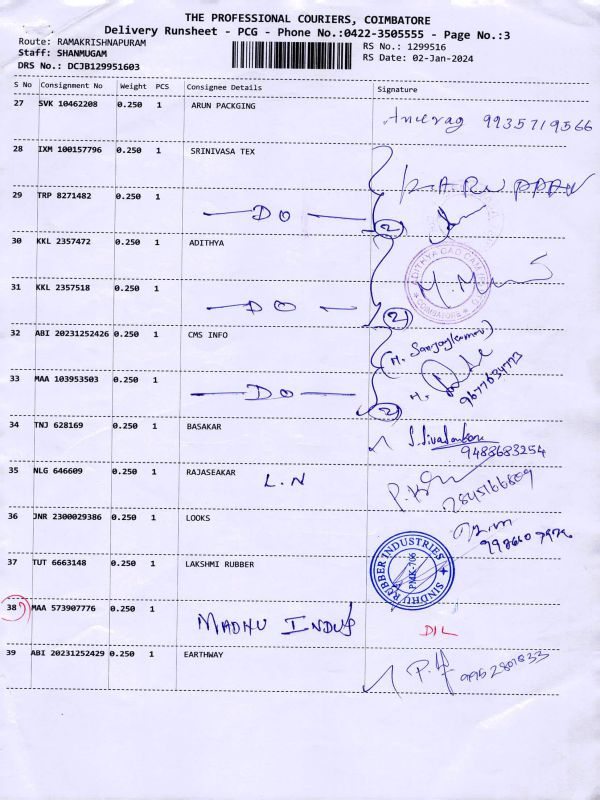 THE PROFESSIONAL COURIERS, COIMBATORE
Delivery Runsheet - PCG - Phone No.:0422-3505555 - Page No.:3
Route: RAMAKRISHNAPURAM
RS No.: 1299516
Staff: SHANMUGAM
RS Date: 02-Jan-2024
DRS No.: DCJB129951603
S No Consignment No Weight PCS Consignee Details Signature
27 SVK 10462208 0.250 1 ARUN PACKGING
Anurag 9935719566
28 IXM 100157796 0.250 1 SRINIVASA TEX
29 TRP 8271482 0.250 1
DO (2)
30 KKL 2357472 0.250 1 ADITHYA
ADITHYA CAD CAM
COIMBATORE
31 KKL 2357518 0.250 1
DO (2)
32 ABI 20231252426 0.250 1 CMS INFO
33 MAA 103953503 0.250 1
DO (2)
9677634773
34 TNJ 628169 0.250 1 BASAKAR
9488683254
35 NLG 646609 0.250 1 RAJASEAKAR
L.N
36 JNR 2300029386 0.250 1 LOOKS
37 TUT 6663148 0.250 1 LAKSHMI RUBBER
SINDHU RUBBER INDUSTRIES
38 MAA 573907776 0.250 1
MADHU INDUS DIL
39 ABI 20231252429 0.250 1 EARTHWAY